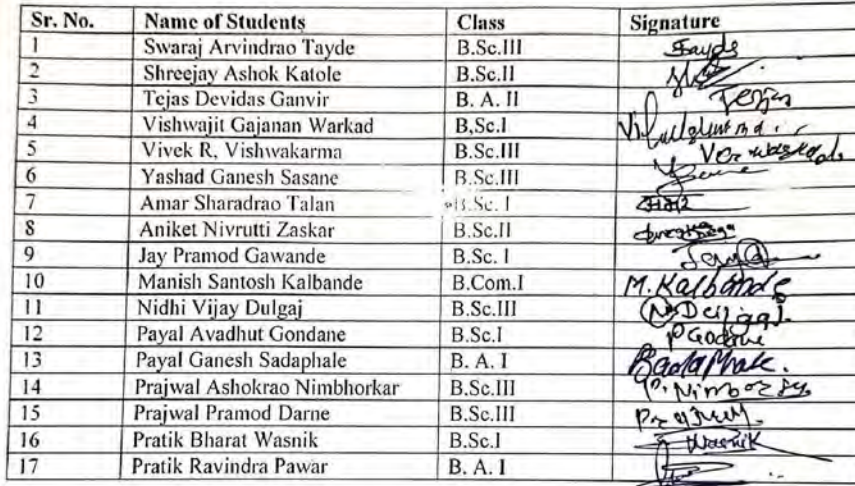 Sr. No. Name of Students Class Signature
1 Swaraj Arvindrao Tayde B.Sc.III Tayde
2 Shreejay Ashok Katole B.Sc.II
3 Tejas Devidas Ganvir B. A. II Tejas
4 Vishwajit Gajanan Warkad B,Sc.I
5 Vivek R, Vishwakarma B.Sc.III
6 Yashad Ganesh Sasane B.Sc.III
7 Amar Sharadrao Talan B.Sc. I अमर
8 Aniket Nivrutti Zaskar B.Sc.II
9 Jay Pramod Gawande B.Sc. I
10 Manish Santosh Kalbande B.Com.I M. Kalbande
11 Nidhi Vijay Dulgaj B.Sc.III
12 Payal Avadhut Gondane B.Sc.I
13 Payal Ganesh Sadaphale B. A. I
14 Prajwal Ashokrao Nimbhorkar B.Sc.III
15 Prajwal Pramod Darne B.Sc.III
16 Pratik Bharat Wasnik B.Sc.I Wasnik
17 Pratik Ravindra Pawar B. A. I